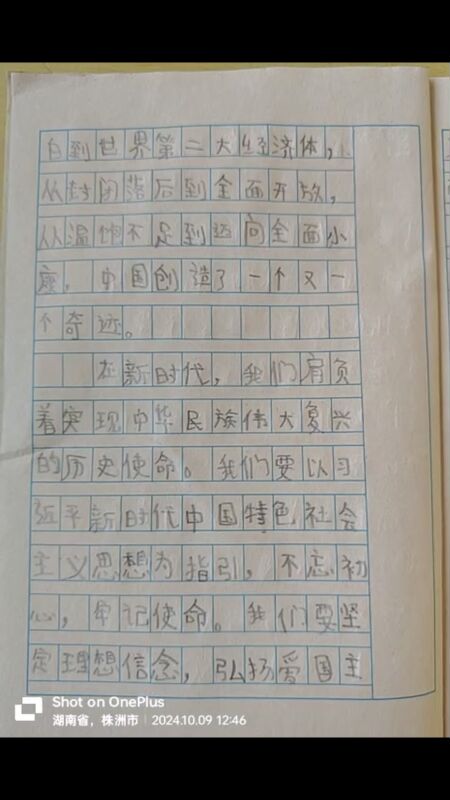 白到世界第二大经济体，
从封闭落后到全面开放，
从温饱不足到迈向全面小
康，中国创造了一个又一
个奇迹。
在新时代，我们肩负
着实现中华民族伟大复兴
的历史使命。我们要以习
近平新时代中国特色社会
主义思想为指引，不忘初
心，牢记使命。我们要坚
定理想信念，弘扬爱国主
Shot on OnePlus
湖南省，株洲市 | 2024.10.09 12:46